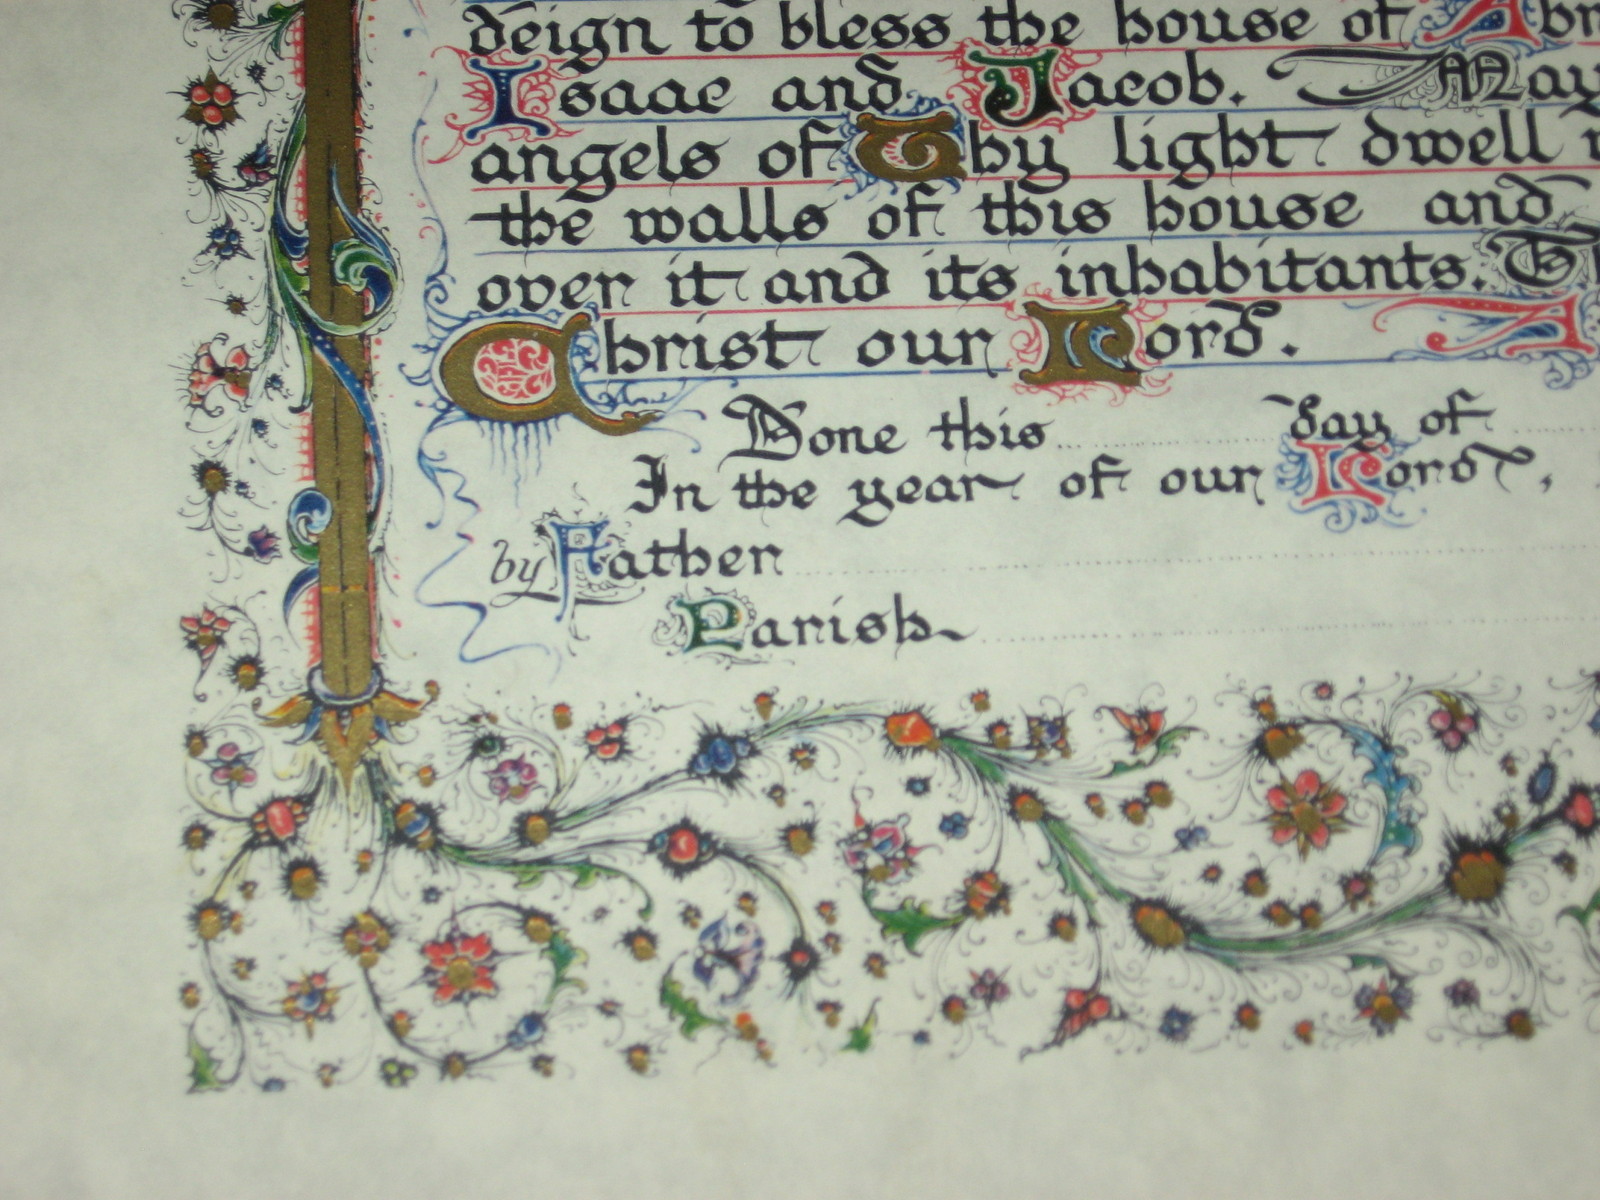 deign to bless the house of Abr
Isaac and Jacob. May
angels of Thy light dwell
the walls of this house and
over it and its inhabitants.
Christ our Lord. A
Done this day of
In the year of our Lord,
by Father
Parish